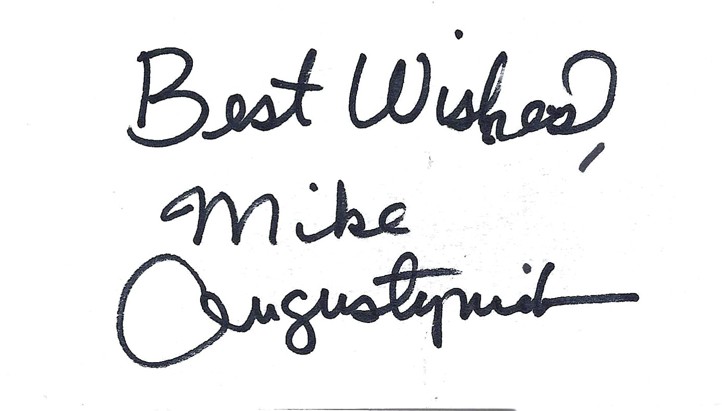 Best Wishes,
Mike
Augustyniak